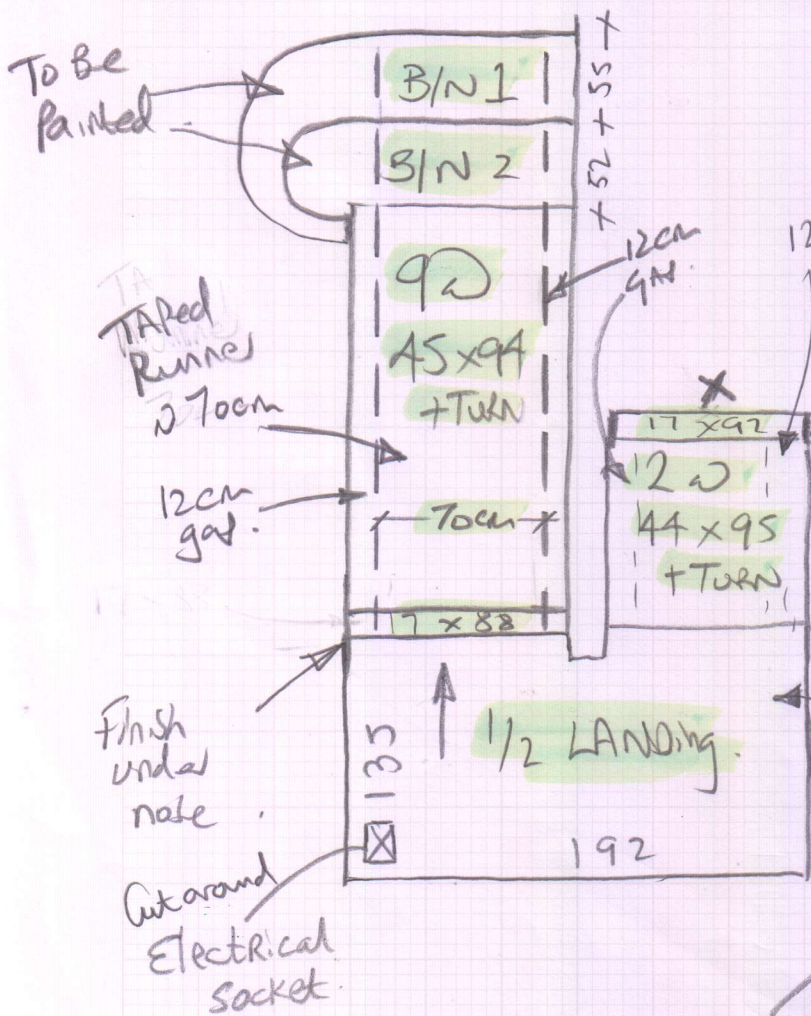 To Be
Painted
B/N 1
B/N 2
+ 52 + 55 +
9W
45 x 94
+ TURN
12cm
gap.
12
TAPed
Runner
@ 70cm
12cm
gap.
70cm
17 x 88
X
17 x 92
2W
44 x 95
+ TURN
Finish
under
nose
135
1/2 LANDing.
192
Cut around
Electrical
Socket.